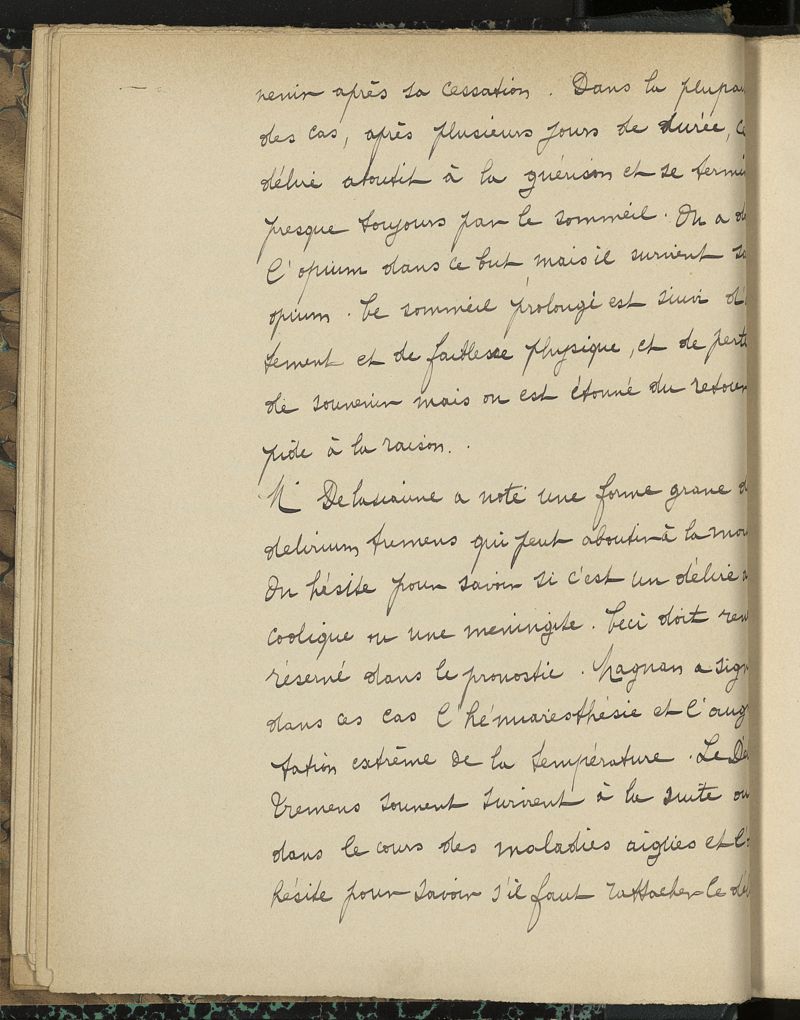 venir après sa cessation. Dans la plupa
des cas, après plusieurs jours de durée, c
délire aboutit à la guérison et se termi
presque toujours par le sommeil. On a d
l'opium dans ce but mais il survient sa
opium. Ce sommeil prolongé est suivi d'
tement et de faiblesse physique, et de perte
de souvenir mais on est étonné du retour
pide à la raison.
Mr Delasiauve a noté une forme grave d
delirium tremens qui peut aboutir à la mor
On hésite pour savoir si c'est un délire a
coolique ou une meningite. Ceci doit ren
réservé dans le pronostic. Magnan a sign
dans ces cas l'hémianesthésie et l'aug
tation extrême de la température. Le Dé
tremens souvent survient à la suite ou
dans le cours des maladies aigües et l'
hésite pour savoir s'il faut rattacher le dé